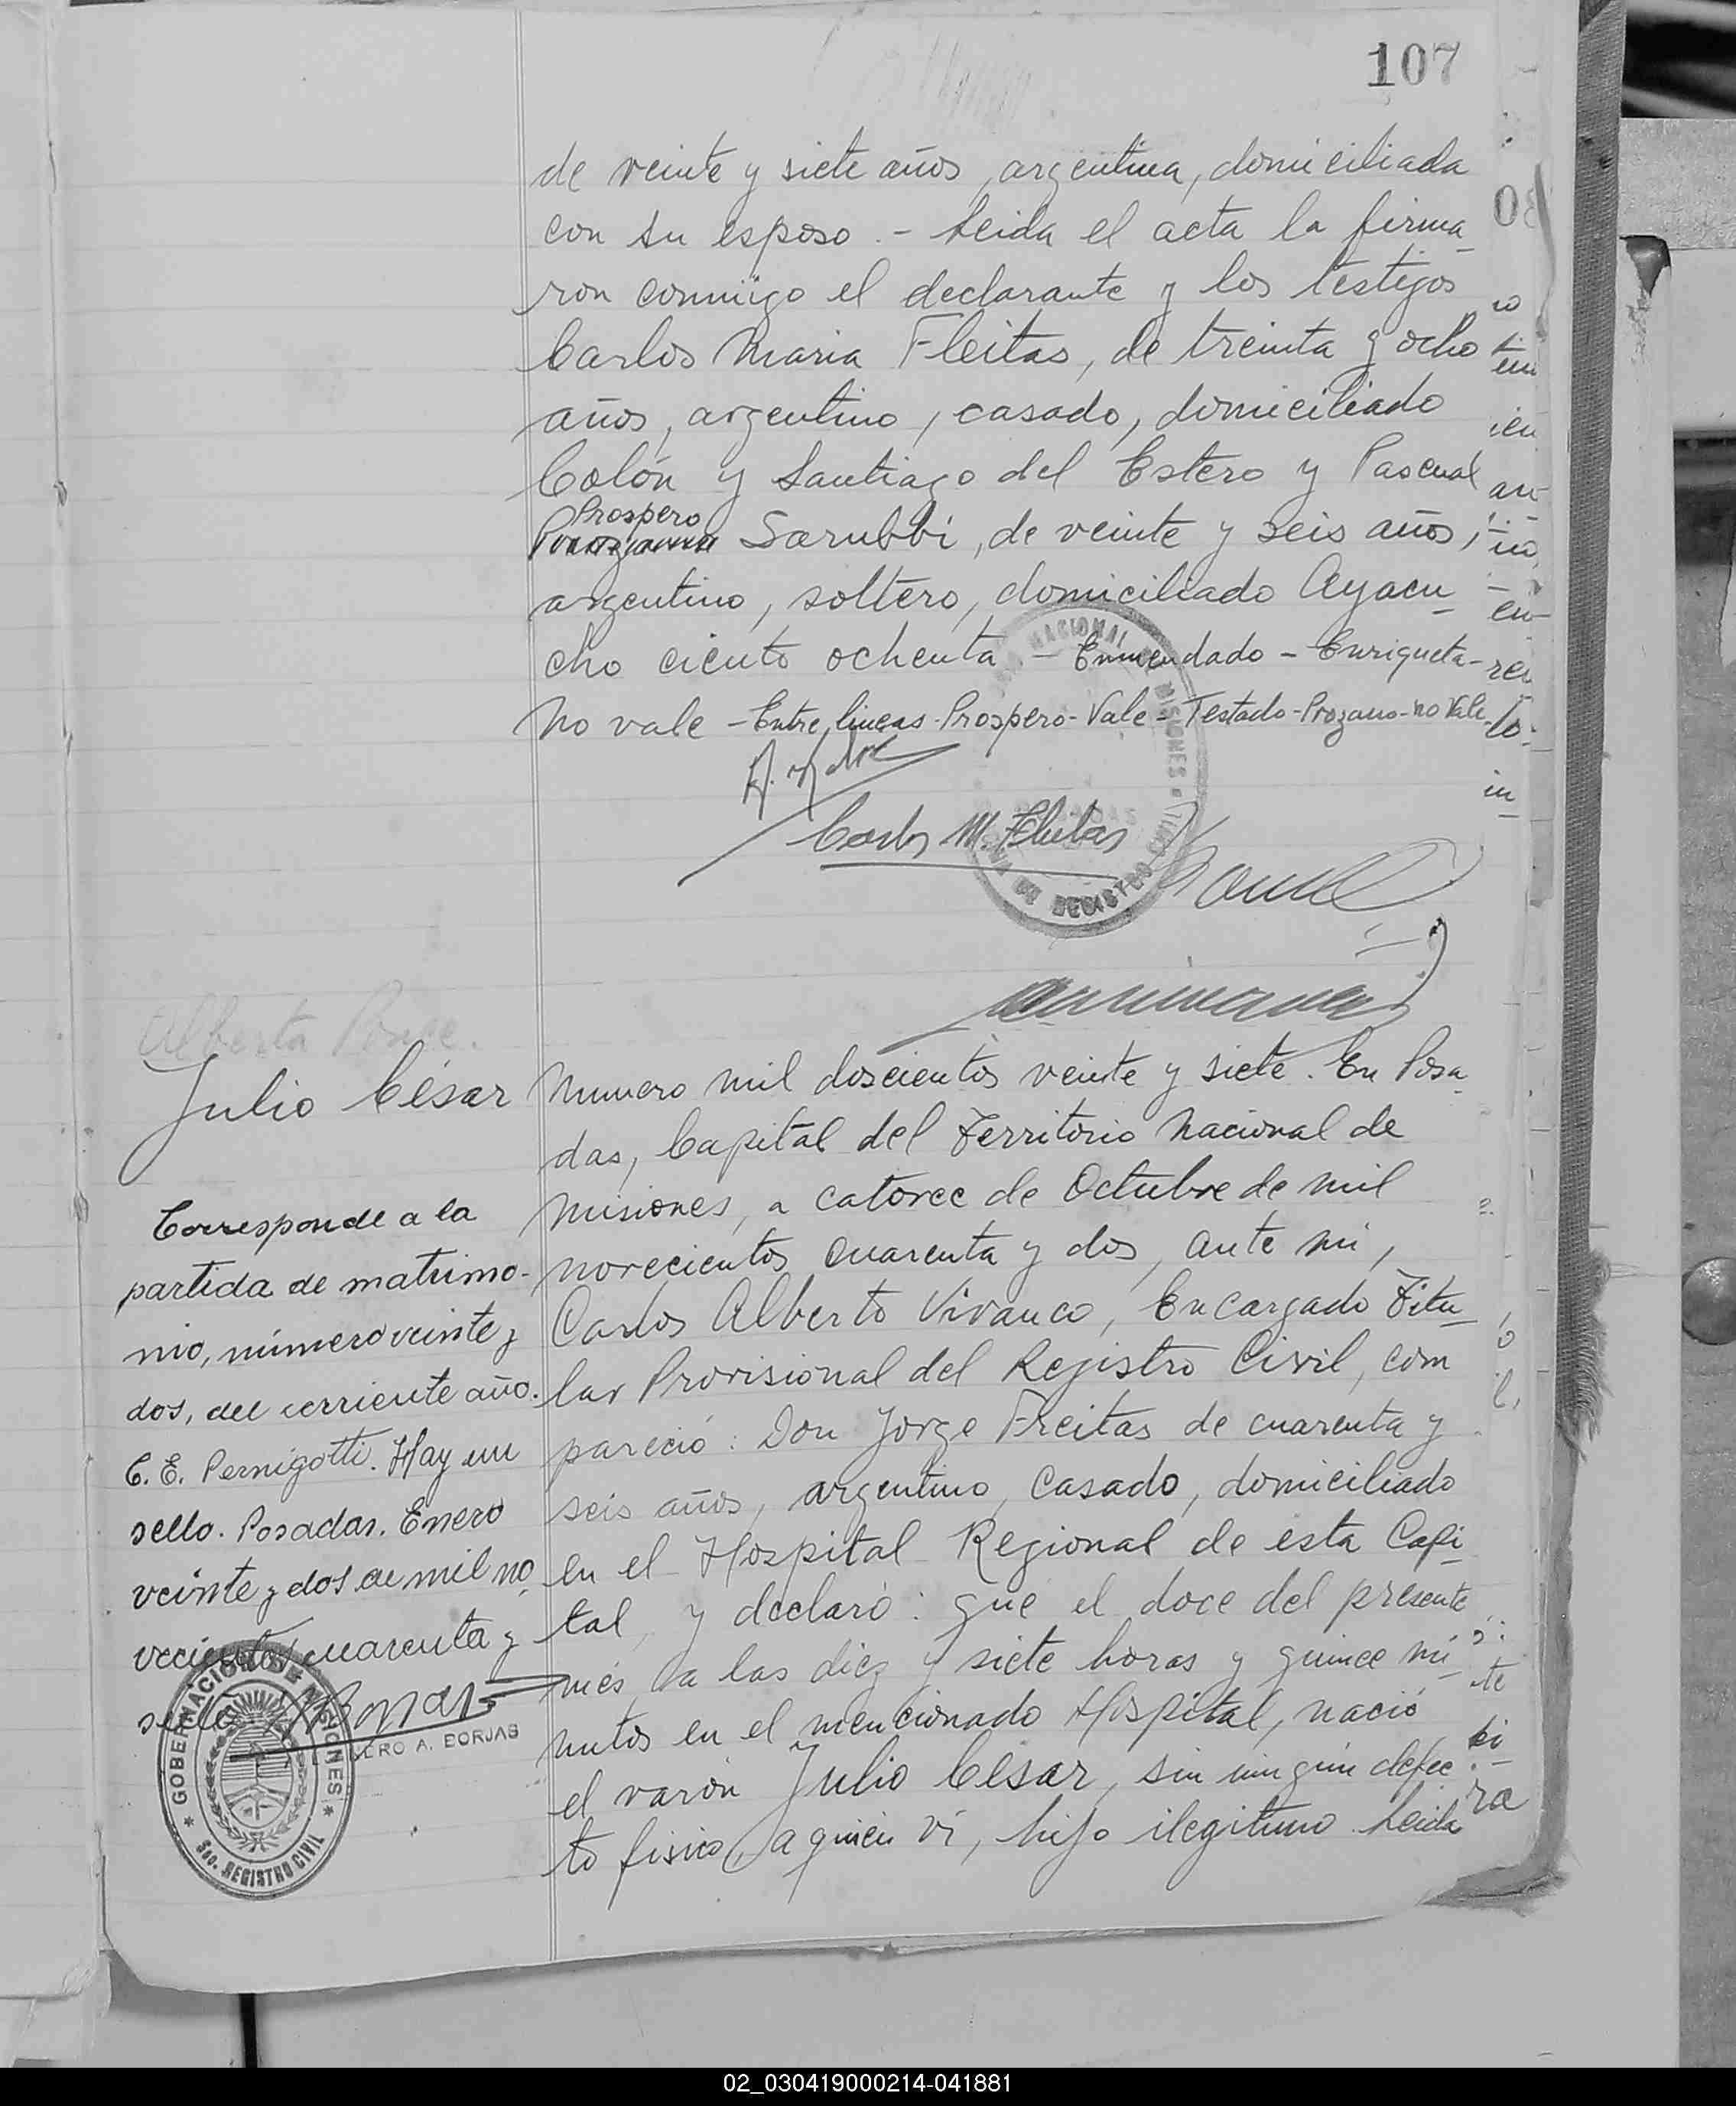 107
de veinte y siete años, argentina, domiciliada
con su esposo.- Leida el acta la firma_
ron conmigo el declarante y los testigos
Carlos Maria Fleitas, de treinta y ocho
años, argentino, casado, domiciliado
Colón y Santiago del Estero y Pascual
Prospero
Sarubbi, de veinte y seis años,
argentino, soltero, domiciliado Ayacu_
cho ciento ochenta.- Enmendado - Enriqueta-
No vale - Entre lineas - Prospero - Vale - Testado - Prozano - no Vale
Carlos M. Fleitas
NACIONAL DE MISIONES
DE REGISTRO CIVIL
Alberta Ponce.
Julio César
Numero mil doscientos veinte y siete. En Posa_
das, Capital del Territorio Nacional de
Misiones, a catorce de Octubre de mil
novecientos cuarenta y dos, ante mi,
Carlos Alberto Vivanco, Encargado Titu_
lar Provisional del Registro Civil, com
pareció: Don Jorge Freitas de cuarenta y
seis años, argentino, casado, domiciliado
en el Hospital Regional de esta Capi_
tal, y declaró: que el doce del presente
més, a las diez y siete horas y quince mi_
nutos en el mencionado Hospital, nació
el varón Julio César, sin ningún defec_
to fisico, a quien vi, hijo ilegitimo. Leida
Corresponde a la
partida de matrimo-
nio, número veinte y
dos, del corriente año.
C. E. Pernigotti. Hay un
sello. Posadas. Enero
veinte y dos de mil no_
vecientos cuarenta y
A. BORJAS
GOBERNACION DE MISIONES
Sec. REGISTRO CIVIL
02_030419000214-041881